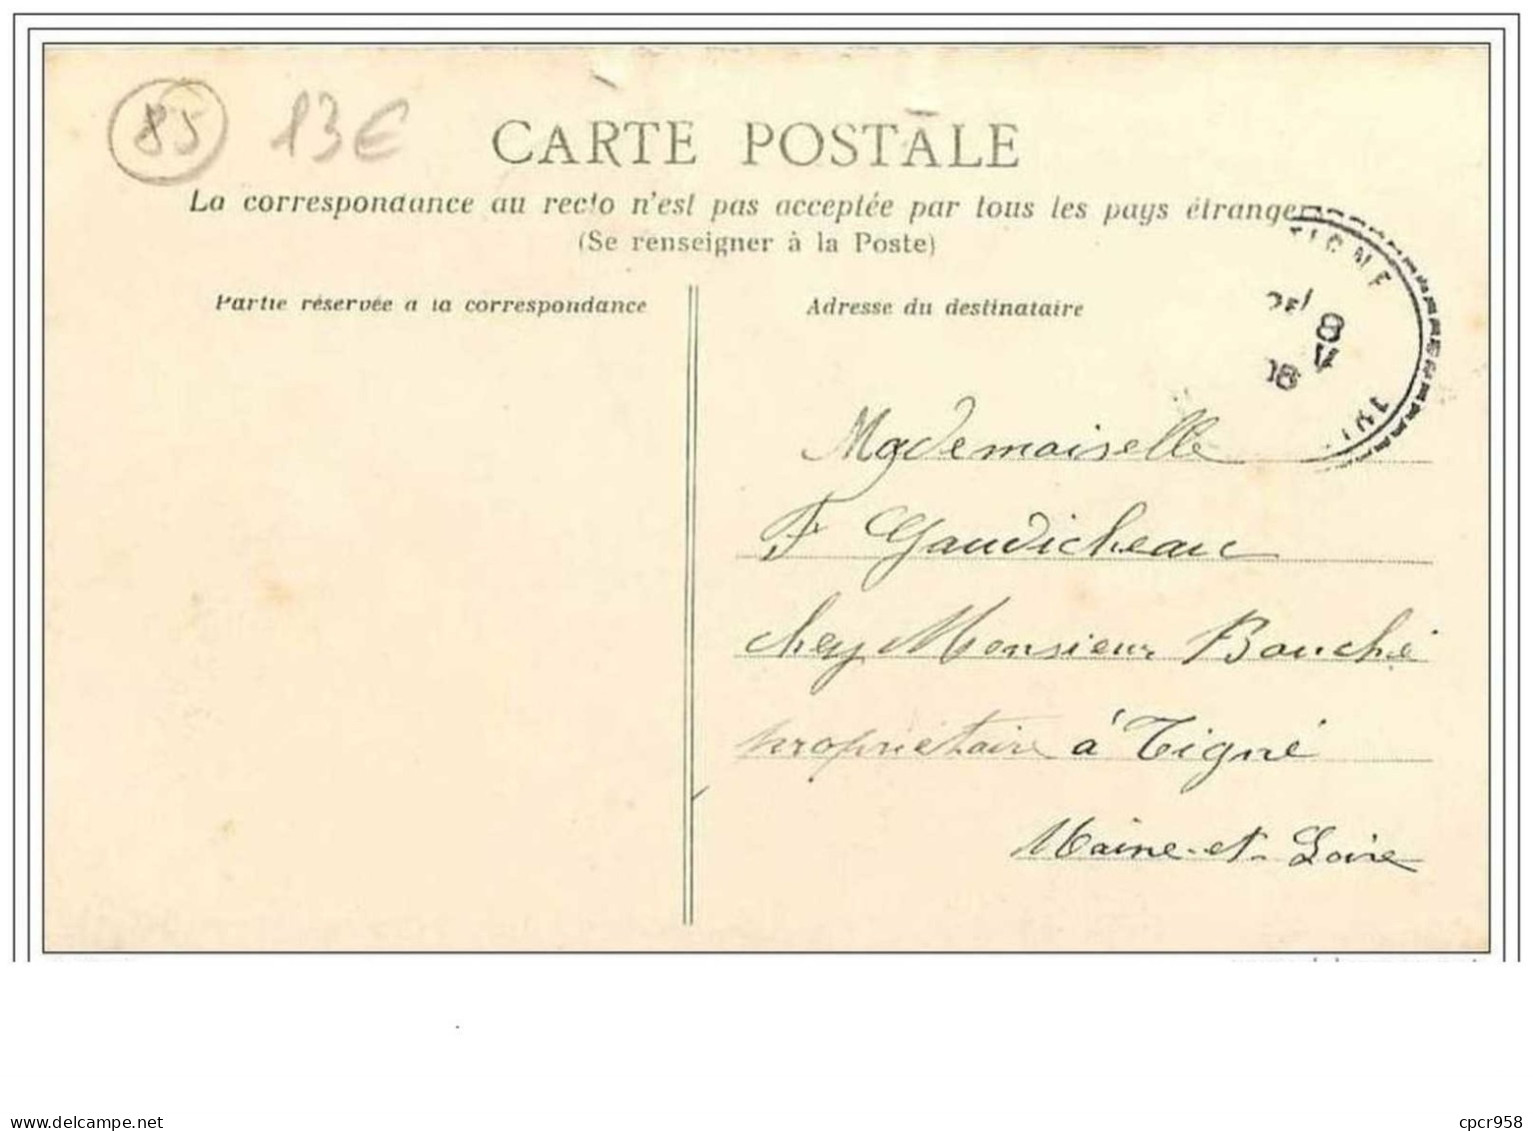 85 13€
CARTE POSTALE
La correspondance au recto n'est pas acceptée par tous les pays étrangers
(Se renseigner à la Poste)
TIGNE
8
08
Partie réservée à la correspondance
Adresse du destinataire
Mademoiselle
F Gaudicheau
chez Monsieur Bouché
propriétaire à Tigné
Maine-et-Loire
cpcr958